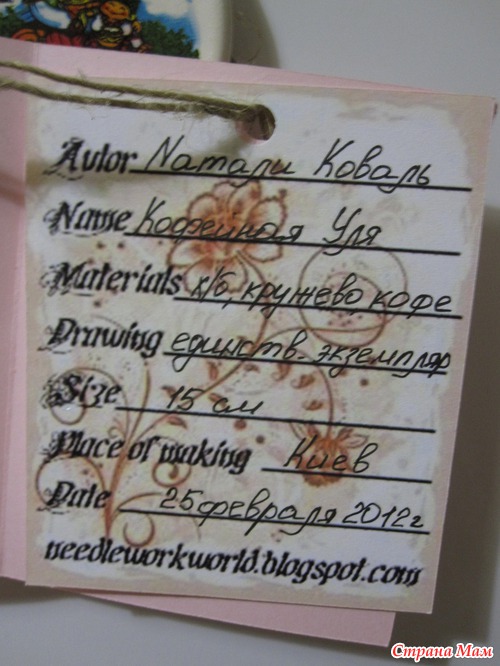 Autor Натали Коваль
Name Кофейная Уля
Materials х/б, кружево, кофе
Drawing единств. экземпляр
Size 15 см
Place of making Киев
Date 25 февраля 2012г
needleworkworld.blogspot.com
Страна Мам